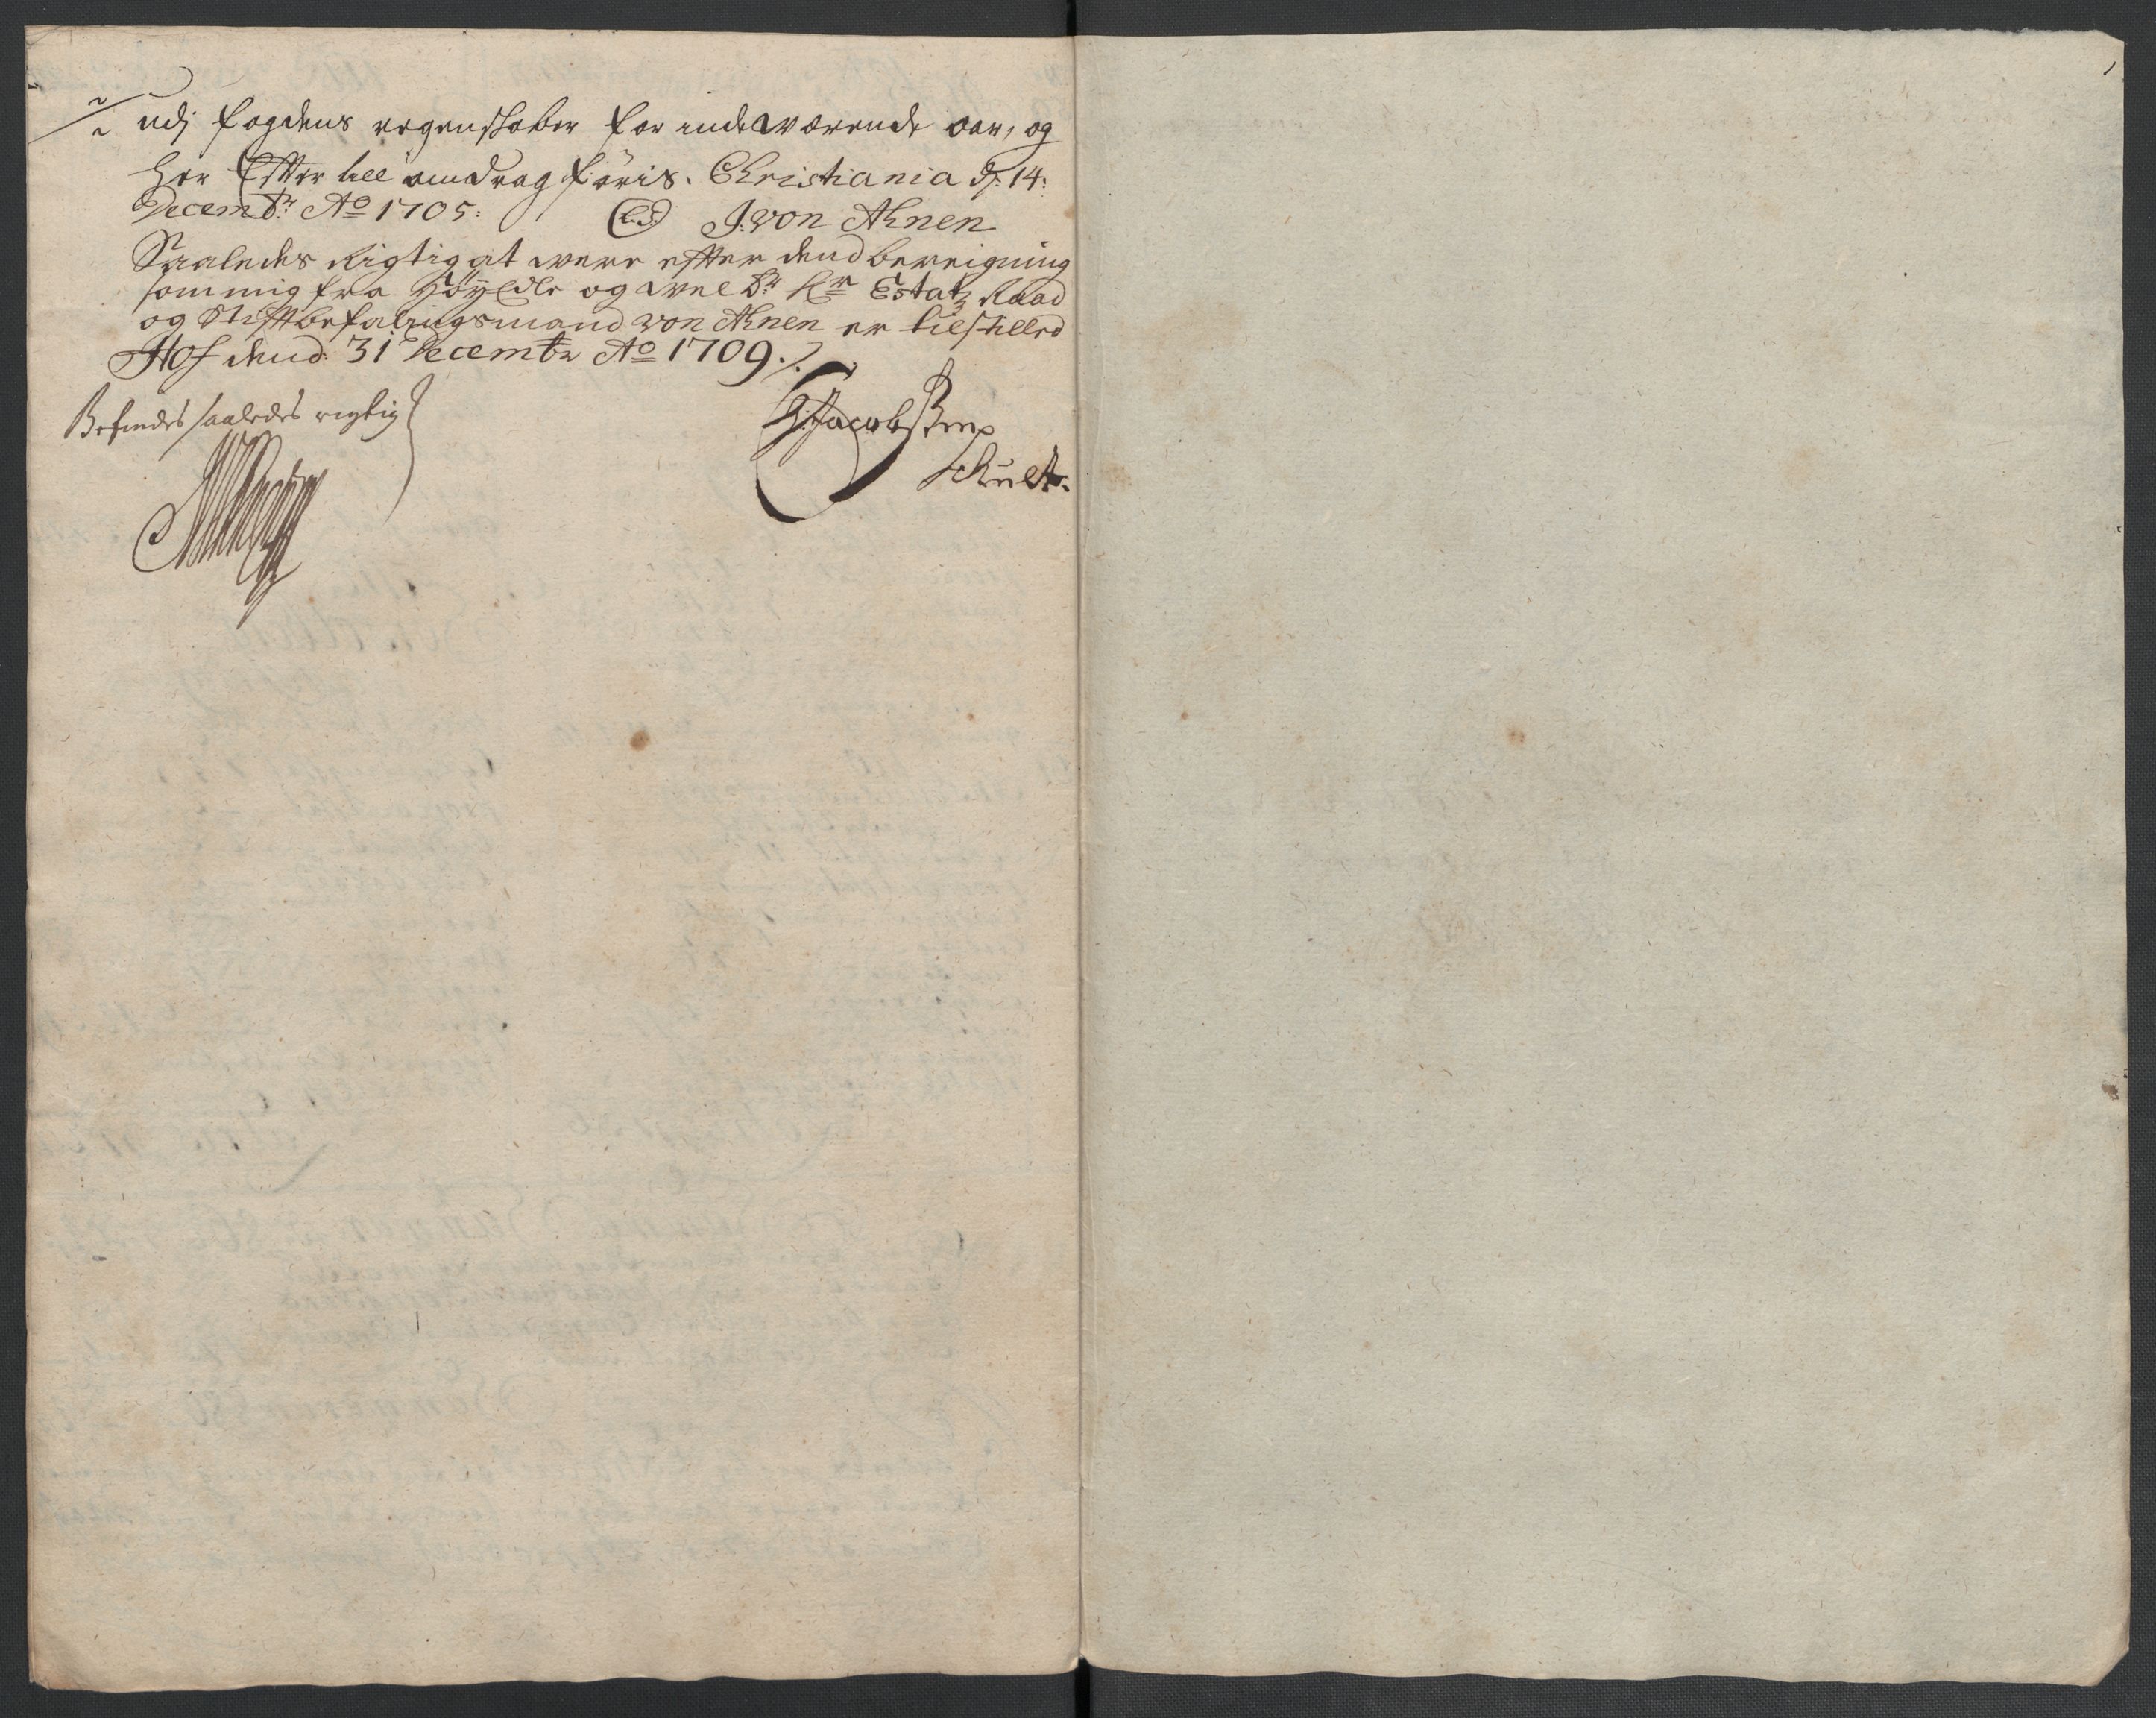 udj fogdens regenskaber for indewærende aar, og
her Effter till amdrag föris. Christiania d: 14:
Decembr: Ao 1705: (L.S.) J: von Ahnen
Saaledes Rigtig at were effter dend bereigning
som mig fra Höyedle og Wel Br: Hr Estatz Raad
og Stiftbefalingsmand von Ahnen er tilstilled
Hof dend 31 Decembr Ao 1709 ./.
Befindes saaledes rigtig